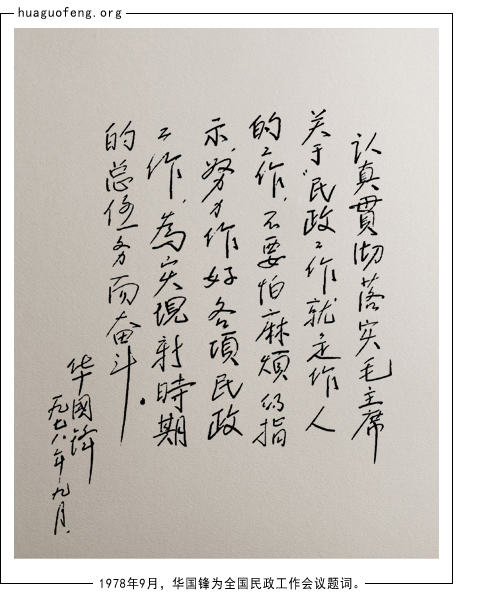 huaguofeng.org
认真貫彻落实毛主席
关于“民政工作就是作人
的工作，不要怕麻煩”的指
示，努力作好各項民政
工作，為实現新時期
的总任务而奋斗．
华國鋒
一九七八年九月．
1978年9月，华国锋为全国民政工作会议题词。